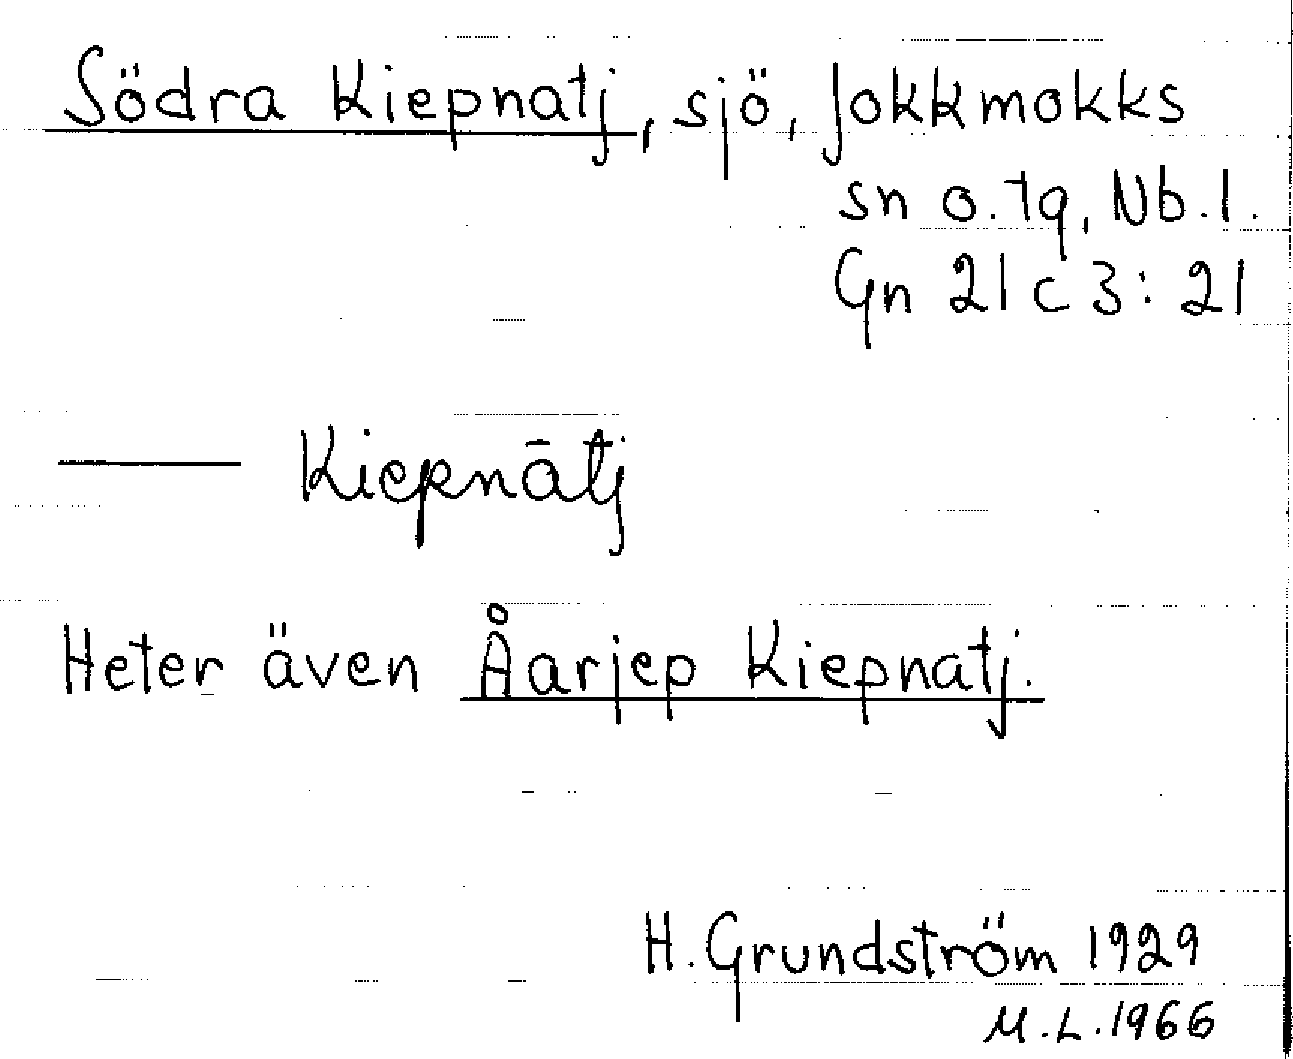 Södra Kiepnatj, sjö, Jokkmokks
sn o. tg, Nb. l.
Gn 21 c 3: 21
—— Kiepnātj
Heter även Åarjep Kiepnatj.
H. Grundström 1929
M. L. 1966